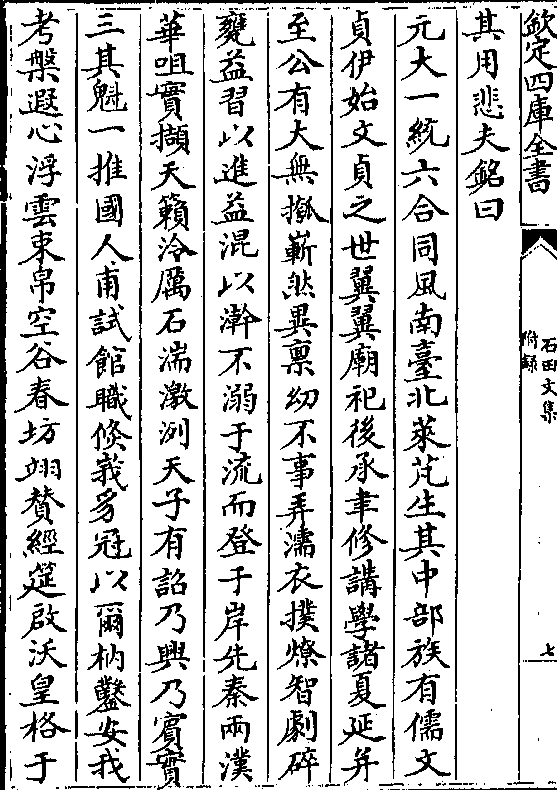 欽定四庫全書
石田文集
附録
七
其用悲夫銘曰
元大一統六合同風南臺北萊芃生其中部族有儒文
貞伊始文貞之世翼翼廟祀後承聿修講學諸夏延并
至公有大無撳嶄然異禀幼不事弄濡衣撲燎智劇碎
甕益習以進益混以澣不溺于流而登于岸先秦兩漢
華咀實擷天籟泠厲石湍激洌天子有詔乃興乃賓賓
三其魁一推國人甫試館職倏峩豸冠以爾枘鑿安我
考槃遐心浮雲束帛空谷春坊翊賛經筵啟沃皇格于